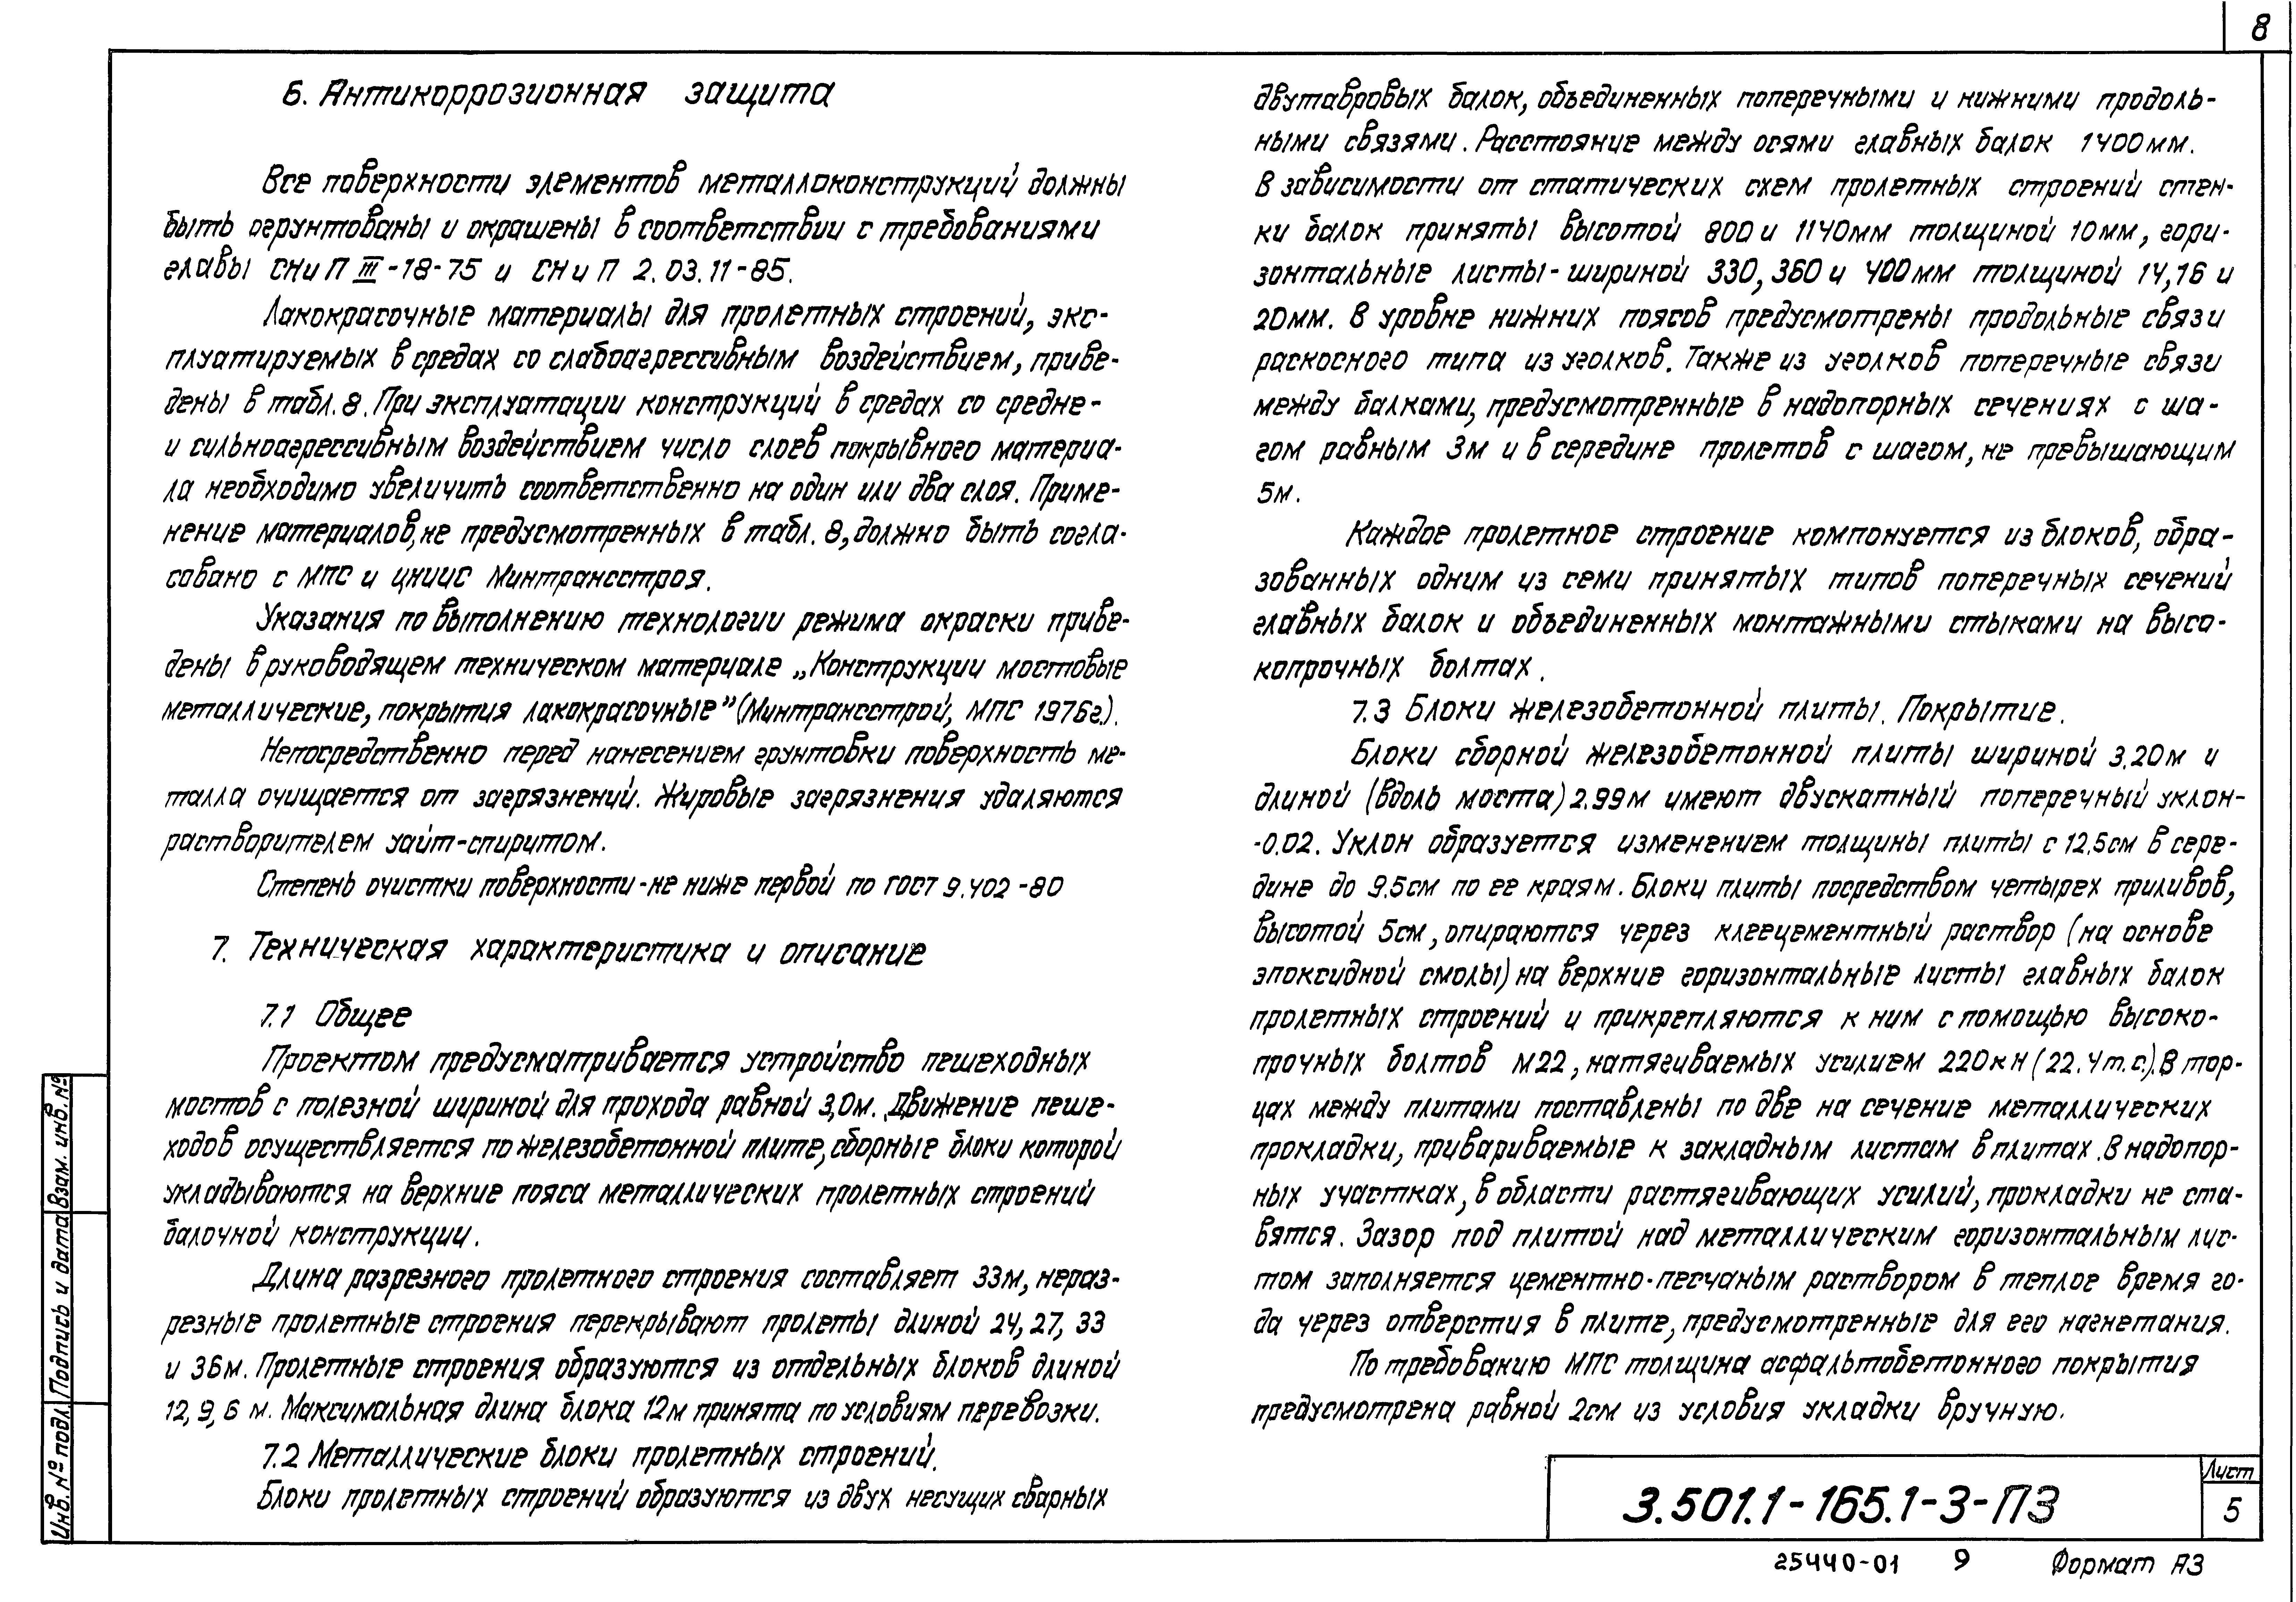 8
6. Антикоррозионная защита
Все поверхности элементов металлоконструкций должны
быть огрунтованы и окрашены в соответствии с требованиями
главы СНиП III-18-75 и СНиП 2.03.11-85.
Лакокрасочные материалы для пролетных строений, экс-
плуатируемых в средах со слабоагрессивным воздействием, приве-
дены в табл. 8. При эксплуатации конструкций в средах со средне-
и сильноагрессивным воздействием число слоев покрывного материа-
ла необходимо увеличить соответственно на один или два слоя. Приме-
нение материалов, не предусмотренных в табл. 8, должно быть согла-
совано с МПС и ЦНИИС Минтрансстроя.
Указания по выполнению технологии режима окраски приве-
дены в руководящем техническом материале „Конструкции мостовые
металлические, покрытия лакокрасочные" (Минтрансстрой, МПС 1976г.).
Непосредственно перед нанесением грунтовки поверхность ме-
талла очищается от загрязнений. Жировые загрязнения удаляются
растворителем уайт-спиритом.
Степень очистки поверхности - не ниже первой по ГОСТ 9.402-80
7. Техническая характеристика и описание
7.1 Общее
Проектом предусматривается устройство пешеходных
мостов с полезной шириной для прохода равной 3,0м. Движение пеше-
ходов осуществляется по железобетонной плите, сборные блоки которой
укладываются на верхние пояса металлических пролетных строений
балочной конструкции.
Длина разрезного пролетного строения составляет 33м, нераз-
резные пролетные строения перекрывают пролеты длиной 24, 27, 33
и 36м. Пролетные строения образуются из отдельных блоков длиной
12, 9, 6 м. Максимальная длина блока 12м принята по условиям перевозки.
7.2 Металлические блоки пролетных строений.
Блоки пролетных строений образуются из двух несущих сварных
двутавровых балок, объединенных поперечными и нижними продоль-
ными связями. Расстояние между осями главных балок 1400мм.
В зависимости от статических схем пролетных строений стен-
ки балок приняты высотой 800 и 1140мм толщиной 10мм, гори-
зонтальные листы - шириной 330, 360 и 400мм толщиной 14, 16 и
20мм. В уровне нижних поясов предусмотрены продольные связи
раскосного типа из уголков. Также из уголков поперечные связи
между балками, предусмотренные в надопорных сечениях с ша-
гом равным 3м и в середине пролетов с шагом, не превышающим
5м.
Каждое пролетное строение компонуется из блоков, обра-
зованных одним из семи принятых типов поперечных сечений
главных балок и объединенных монтажными стыками на высо-
копрочных болтах.
7.3 Блоки железобетонной плиты. Покрытие.
Блоки сборной железобетонной плиты шириной 3.20м и
длиной (вдоль моста) 2.99м имеют двускатный поперечный уклон-
-0.02. Уклон образуется изменением толщины плиты с 12,5см в сере-
дине до 9.5см по ее краям. Блоки плиты посредством четырех приливов,
высотой 5см, опираются через клеецементный раствор (на основе
эпоксидной смолы) на верхние горизонтальные листы главных балок
пролетных строений и прикрепляются к ним с помощью высоко-
прочных болтов М22, натягиваемых усилием 220кН (22.4т.с.). В тор-
цах между плитами поставлены по две на сечение металлических
прокладки, привариваемые к закладным листам в плитах. В надопор-
ных участках, в области растягивающих усилий, прокладки не ста-
вятся. Зазор под плитой над металлическим горизонтальным лис-
том заполняется цементно-песчаным раствором в теплое время го-
да через отверстия в плите, предусмотренные для его нагнетания.
По требованию МПС толщина асфальтобетонного покрытия
предусмотрена равной 2см из условия укладки вручную.
Инв. № подл. Подпись и дата Взам. инв. №
3.501.1-165.1-3-ПЗ
Лист
5
25440-01 9 Формат А3